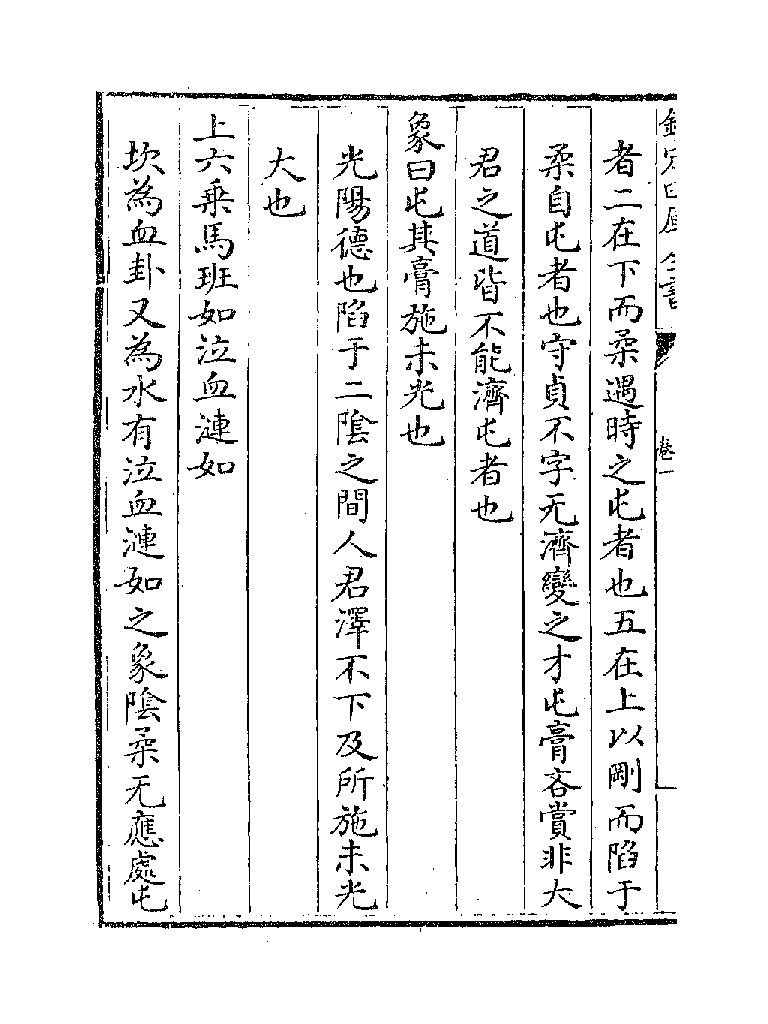 欽定四庫全書
卷一
者二在下而柔遇時之屯者也五在上以剛而陷于
柔自屯者也守貞不字无濟變之才屯膏吝賞非大
君之道皆不能濟屯者也
象曰屯其膏施未光也
光陽德也陷于二隂之間人君澤不下及所施未光
大也
上六乗馬班如泣血漣如
坎為血卦又為水有泣血漣如之象隂柔无應處屯